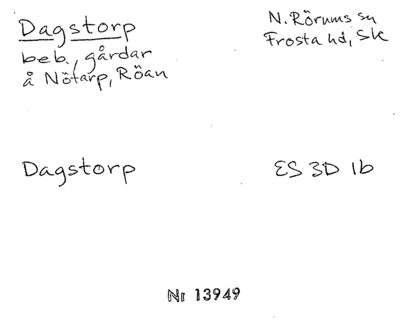 Dagstorp
N. Rörums sn
Frosta hd, Sk
beb., gårdar
å Nötarp, Röan
Dagstorp
ES 3D 1b
Nr 13949